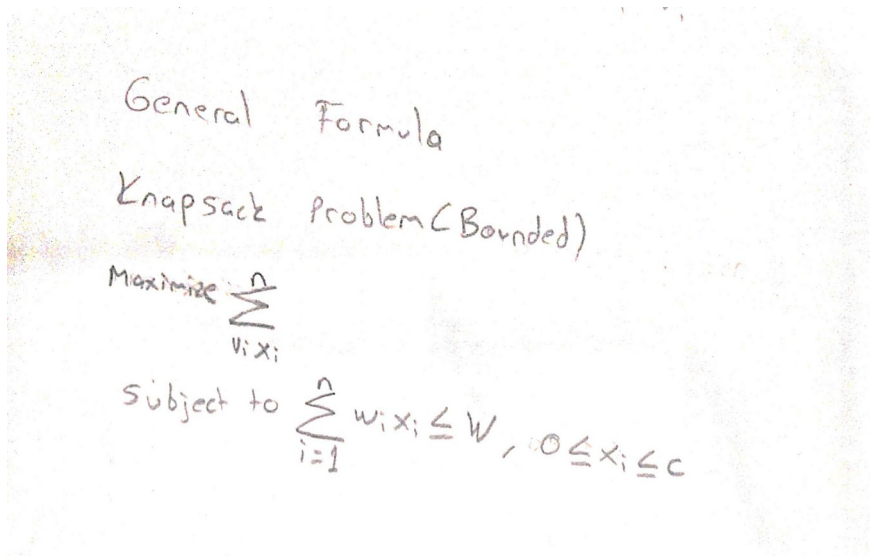 General Formula
Knapsack Problem (Bounded)
Maximize n ∑ vᵢxᵢ
subject to n ∑ i=1 wᵢxᵢ ≤ W, 0≤xᵢ≤c